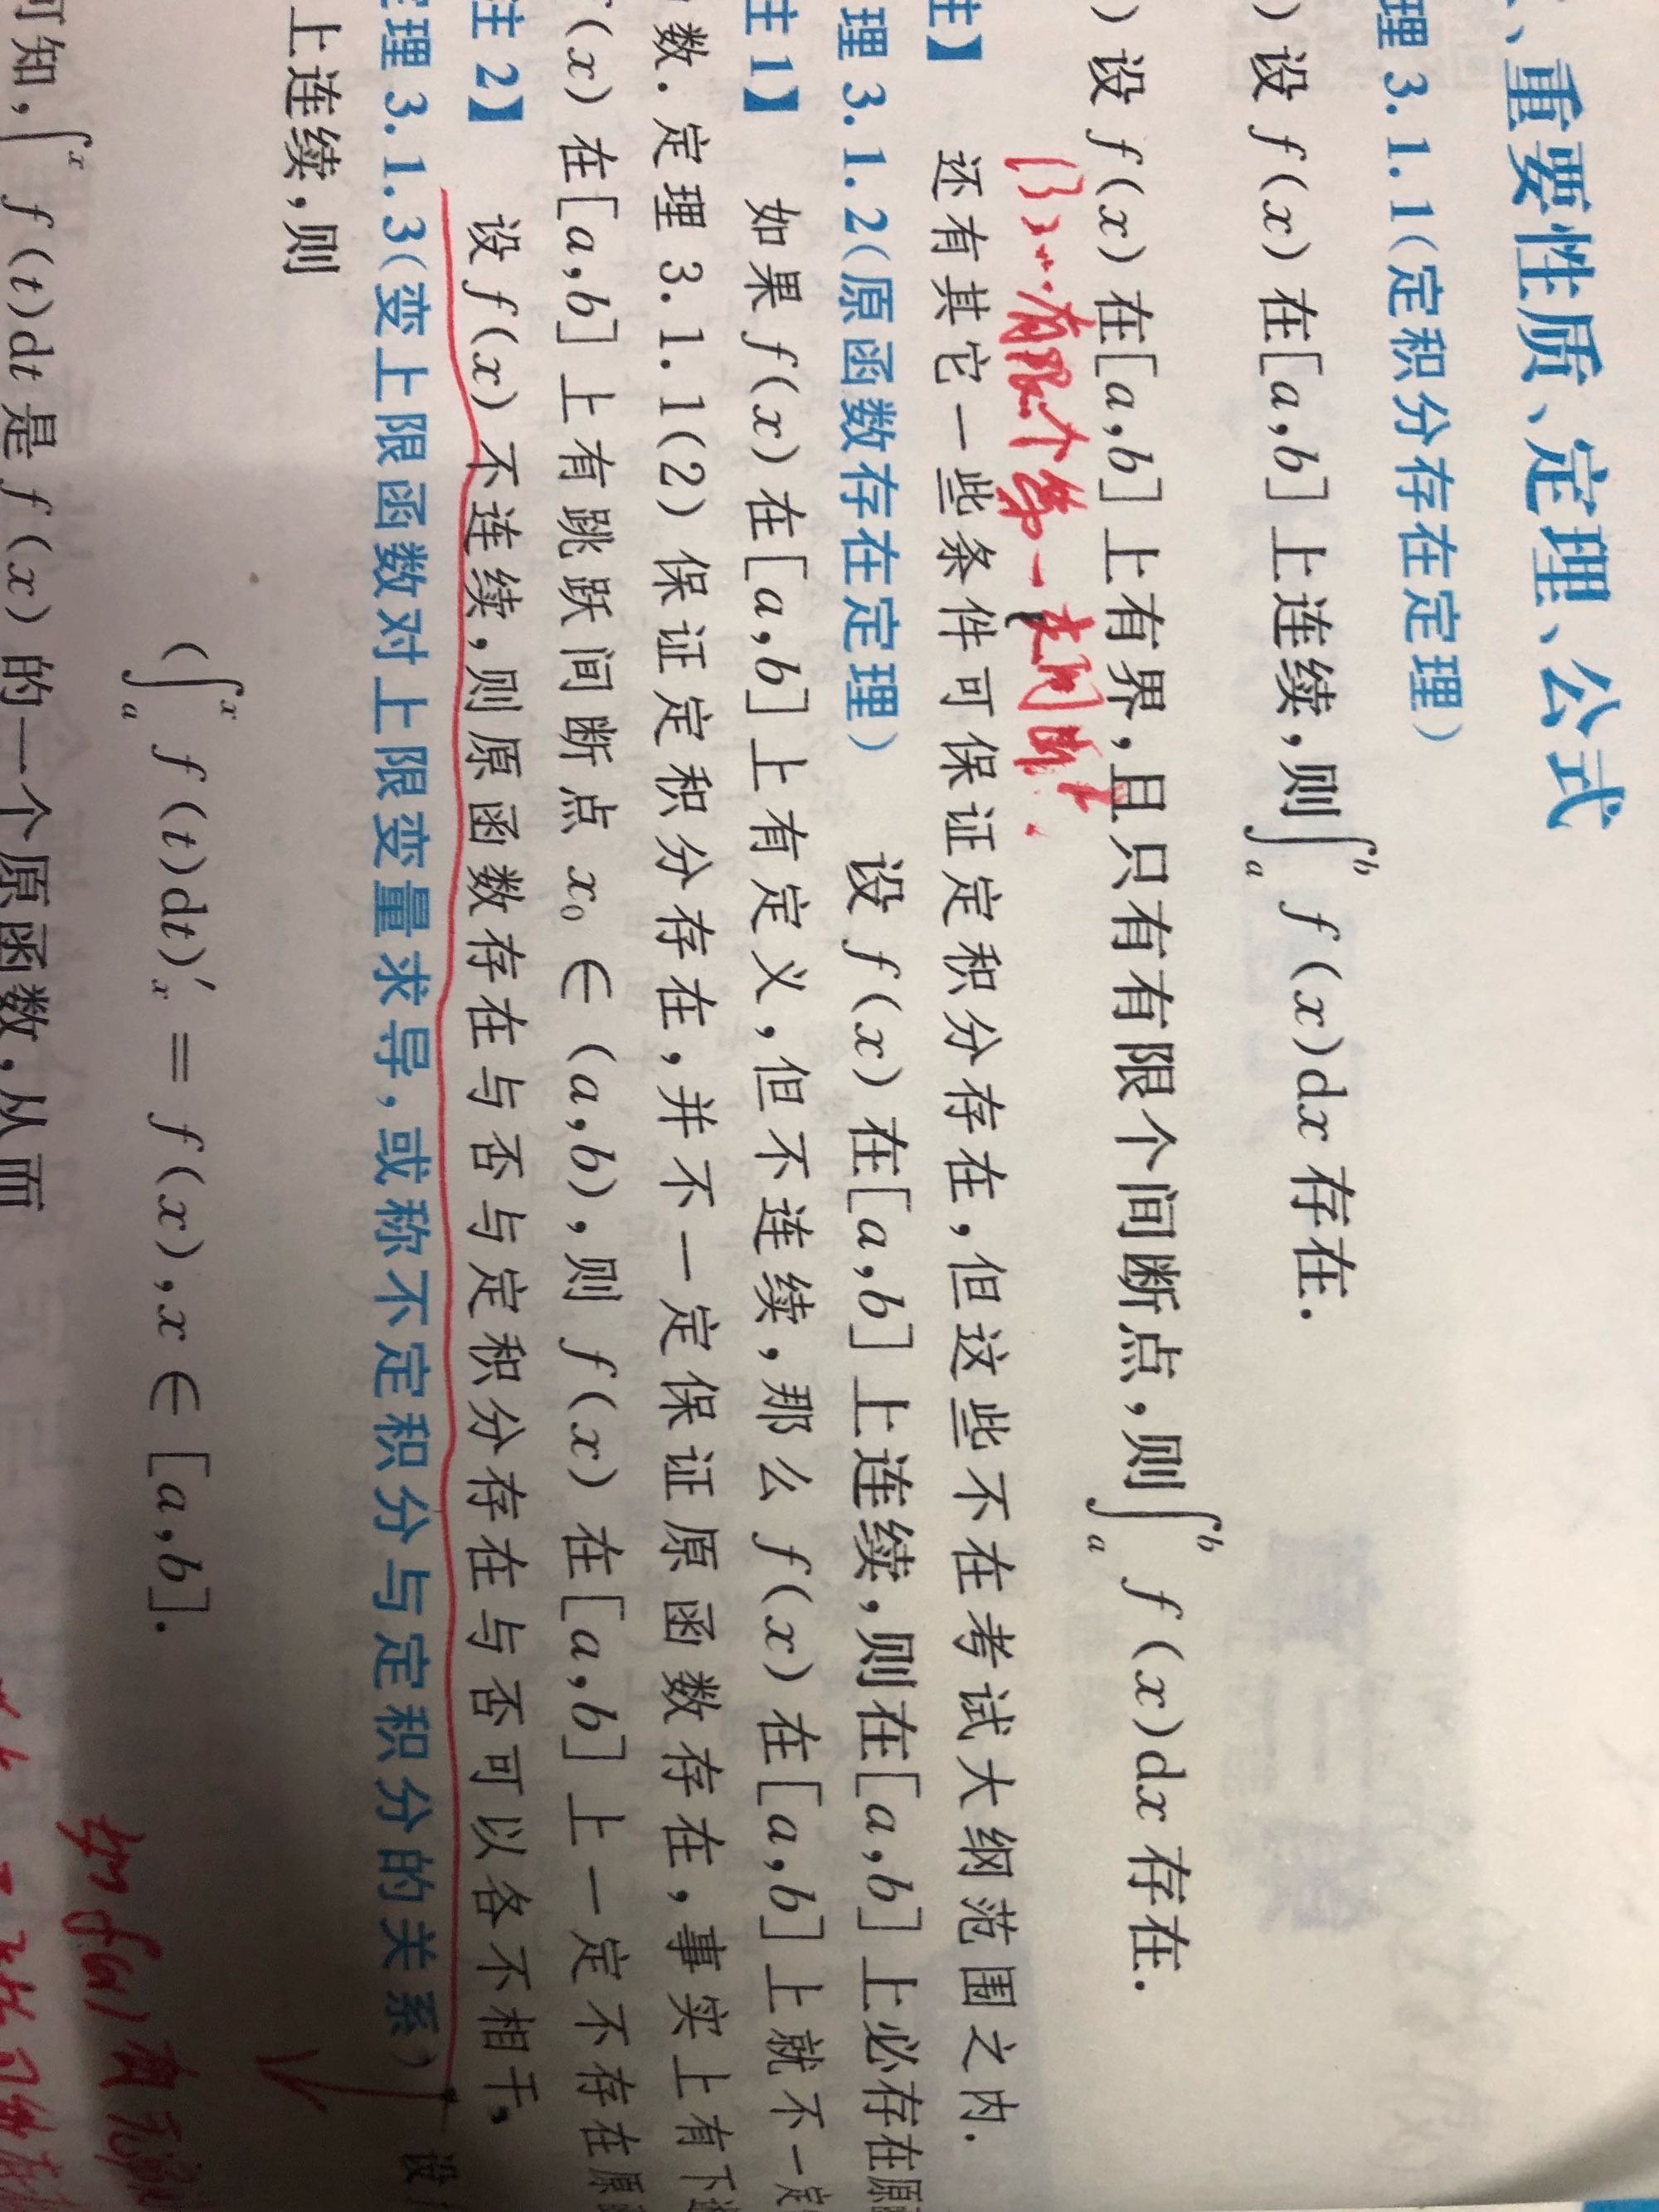 、重要性质、定理、公式
理 3.1.1(定积分存在定理)
)设 f(x) 在[a,b]上连续,则∫_a^b f(x)dx 存在.
)设 f(x) 在[a,b]上有界,且只有有限个间断点,则∫_a^b f(x)dx 存在.
有限个第一类间断点.
注】 还有其它一些条件可保证定积分存在,但这些不在考试大纲范围之内.
理 3.1.2(原函数存在定理) 设 f(x) 在[a,b]上连续,则在[a,b]上必存在原
注 1】 如果 f(x) 在[a,b]上有定义,但不连续,那么 f(x) 在[a,b]上就不一定
数.定理 3.1.1(2) 保证定积分存在,并不一定保证原函数存在,事实上有下
(x) 在[a,b]上有跳跃间断点 x₀ ∈ (a,b),则 f(x) 在[a,b]上一定不存在原
注 2】 设 f(x) 不连续,则原函数存在与否与定积分存在与否可以各不相干,
定理 3.1.3(变上限函数对上限变量求导,或称不定积分与定积分的关系) 设
上连续,则
(∫_a^x f(t)dt)′_x = f(x),x ∈ [a,b].
可知,∫^x f(t)dt 是 f(x) 的一个原函数,从而
如 f(x) 有无穷